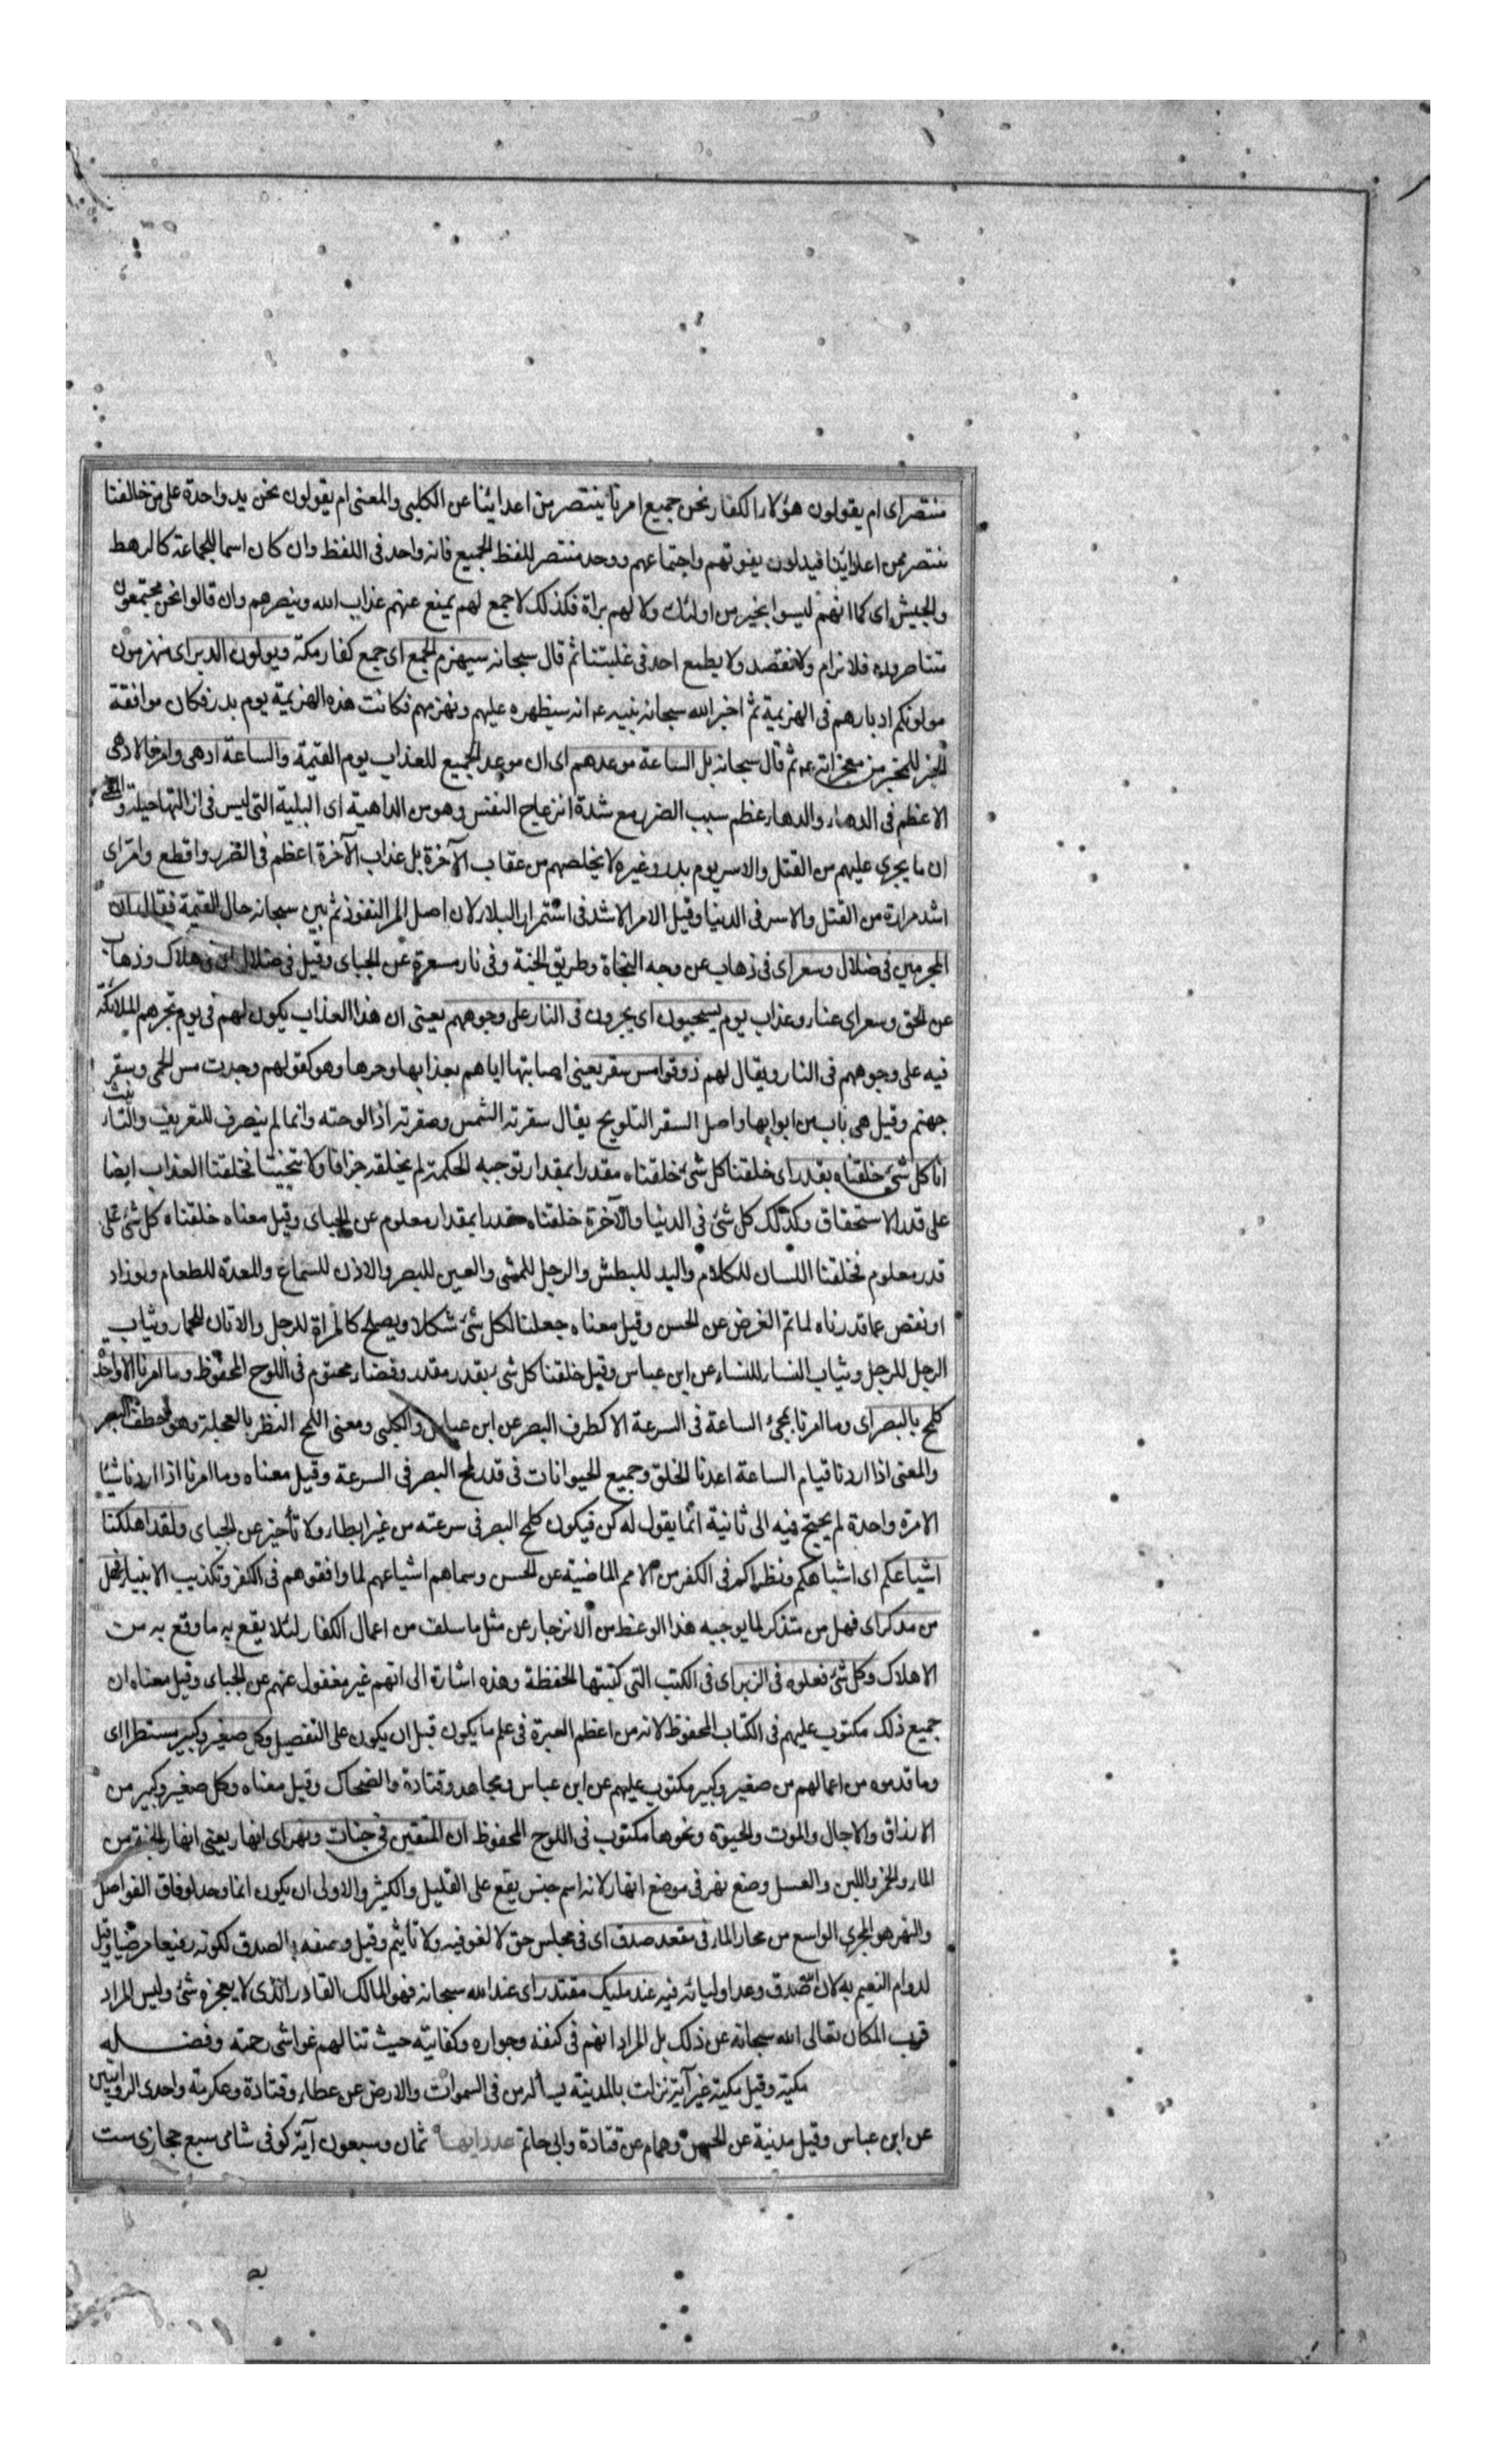 منتصر اى ام يقولون هؤلاء الكفار نحن جميع امرنا ينتصر من اعدائنا عن الكلبى والمعنى ام يقولون نحن يد واحدة على من خالفنا
ننتصر ممن اعدائنا فيدلون بقوتهم واجتماعهم ووحد منتصر للفظ الجميع فانه واحد فى اللفظ وان كان اسما للجماعة كالرهط
والجيش اى كما انهم ليسوا بخير من اولئك ولا لهم براة فكذلك لا جمع لهم يمنع عنهم عذاب الله وينصرهم وان قالوا نحن مجتمعون
متناصرون فلا نرام ولا نقصد ولا يطمع احد فى غلبتنا ثم قال سبحانه سيهزم الجمع اى جمع كفار مكة ويولون الدبر اى ينهزمون
مولونكم ادبارهم فى الهزيمة ثم اخبر الله سبحانه نبيه ع انه سيظهره عليهم ويهزمهم فكانت هذه الهزيمة يوم بدر فكان موافقة
الخبر للمخبر من معجزاته ع ثم قال سبحانه بل الساعة موعدهم اى ان موعد الجميع للعذاب يوم القيمة والساعة ادهى وامر فالادهى
الاعظم فى الدهاء والدهاء عظم سبب الضرر مع شدة انزعاج النفس وهو من الداهية اى البلية التى ليس فى ازالتها حيلة والمعنى
ان ما يجرى عليهم من القتل والاسر يوم بدر وغيره لا يخلصهم من عقاب الآخرة بل عذاب الآخرة اعظم فى الضرر واقطع وامر اى
اشد مرارة من القتل والاسر فى الدنيا وقيل الامر الاشد فى استمرار البلاء لان اصل المر النفوذ ثم بين سبحانه حال القيمة فقال ان
المجرمين فى ضلال وسعر اى فى ذهاب عن وجه النجاة وطريق الجنة وفى نار مسعرة عن الجباى وقيل فى ضلال اى فى هلاك وذهاب
عن الحق وسعر اى عناء وعذاب يوم يسحبون اى يجرون فى النار على وجوههم يعنى ان هذا العذاب يكون لهم فى يوم تجرهم الملائكة
فيه على وجوههم فى النار ويقال لهم ذوقوا مس سقر يعنى اصابتها اياهم بعذابها وحرها وهو كقولهم وجدت مس الحمى وسقر
جهنم وقيل هى باب من ابوابها واصل السقر التلويح يقال سقرته الشمس وصقرته اذا لوحته وانما لم ينصرف للتعريف والتانيث
انا كل شئ خلقناه بقدر اى خلقنا كل شئ خلقناه مقدرا بمقدار توجبه الحكمة لم نخلقه جزافا ولا تبخيتا فخلقنا العذاب ايضا
على قدر الاستحقاق وكذلك كل شئ فى الدنيا والآخرة خلقناه مقدرا بمقدار معلوم عن الجباى وقيل معناه خلقناه كل شئ على
قدر معلوم فخلقنا اللسان للكلام واليد للبطش والرجل للمشى والعين للبصر والاذن للسماع والمعدة للطعام ولو زاد
او نقص عما قدرناه لما تم الغرض عن الحسن وقيل معناه جعلنا لكل شئ شكلا ويصلح كالمراة للرجل والاتان للحمار وثياب
الرجل للرجل وثياب النساء للنساء عن ابن عباس وقيل خلقنا كل شئ بقدر مقدر وقضاء محتوم فى اللوح المحفوظ وما امرنا الا واحدة
كلمح بالبصر اى وما امرنا بمجئ الساعة فى السرعة الا كطرف البصر عن ابن عباس والكلبى ومعنى اللمح النظر بالعجلة وهو خطف البصر
والمعنى اذا اردنا قيام الساعة اعدنا الخلق وجميع الحيوانات فى قدر لمح البصر فى السرعة وقيل معناه وما امرنا اذا اردنا شيئا
الا مرة واحدة لم يحتج فيه الى ثانية انما يقول له كن فيكون كلمح البصر فى سرعته من غير ابطاء ولا تأخير عن الجباى ولقد اهلكنا
اشياعكم اى اشباهكم ونظراكم فى الكفر من الامم الماضية عن الحسن وسماهم اشياعهم لما وافقوهم فى الكفر وتكذيب الانبياء فهل
من مدكر اى فهل من متذكر لما يوجبه هذا الوعظ من الانزجار عن مثل ما سلف من اعمال الكفار لئلا يقع به ما وقع به من
الاهلاك وكل شئ فعلوه فى الزبر اى فى الكتب التى كتبتها الحفظة وهذه اشارة الى انهم غير مغفول عنهم عن الجباى وقيل معناه ان
جميع ذلك مكتوب عليهم فى الكتاب المحفوظ لانه من اعظم العبرة فى علم ما يكون قبل ان يكون على التفصيل وكل صغير وكبير مستطر اى
وما قدموه من اعمالهم من صغير وكبير مكتوب عليهم عن ابن عباس ومجاهد وقتادة والضحاك وقيل معناه وكل صغير وكبير من
الارزاق والاجال والموت والحيوة ونحوها مكتوب فى اللوح المحفوظ ان المتقين فى جنات ونهر اى انهار يعنى انهار الجنة من
الماء والخمر واللبن والعسل وضع نهر فى موضع انهار لانه اسم جنس يقع على القليل والكثير والاولى ان يكون انما وحد لوفاق الفواصل
والنهر هو المجرى الواسع من مجار الماء فى مقعد صدق اى فى مجلس حق لا لغو فيه ولا تاثيم وقيل وصفه بالصدق لكونه رفيعا مرضيا وقيل
لدوام النعيم به لان الله صدق وعد اوليائه فيه عند مليك مقتدر اى عند الله سبحانه فهو المالك القادر الذى لا يعجزه شئ وليس المراد
قرب المكان تعالى الله سبحانه عن ذلك بل المراد انهم فى كنفه وجواره وكفايته حيث تنالهم غواشى رحمته وفضله
مكية وقيل مكية غير آية نزلت بالمدينة يسأله من فى السموات والارض عن عطاء وقتادة وعكرمة واحدى الروايتين
عن ابن عباس وقيل مدنية عن الحسن وهمام عن قتادة وابى حاتم عدد ايها ثمان وسبعون آية كوفى شامى سبع حجازى ست